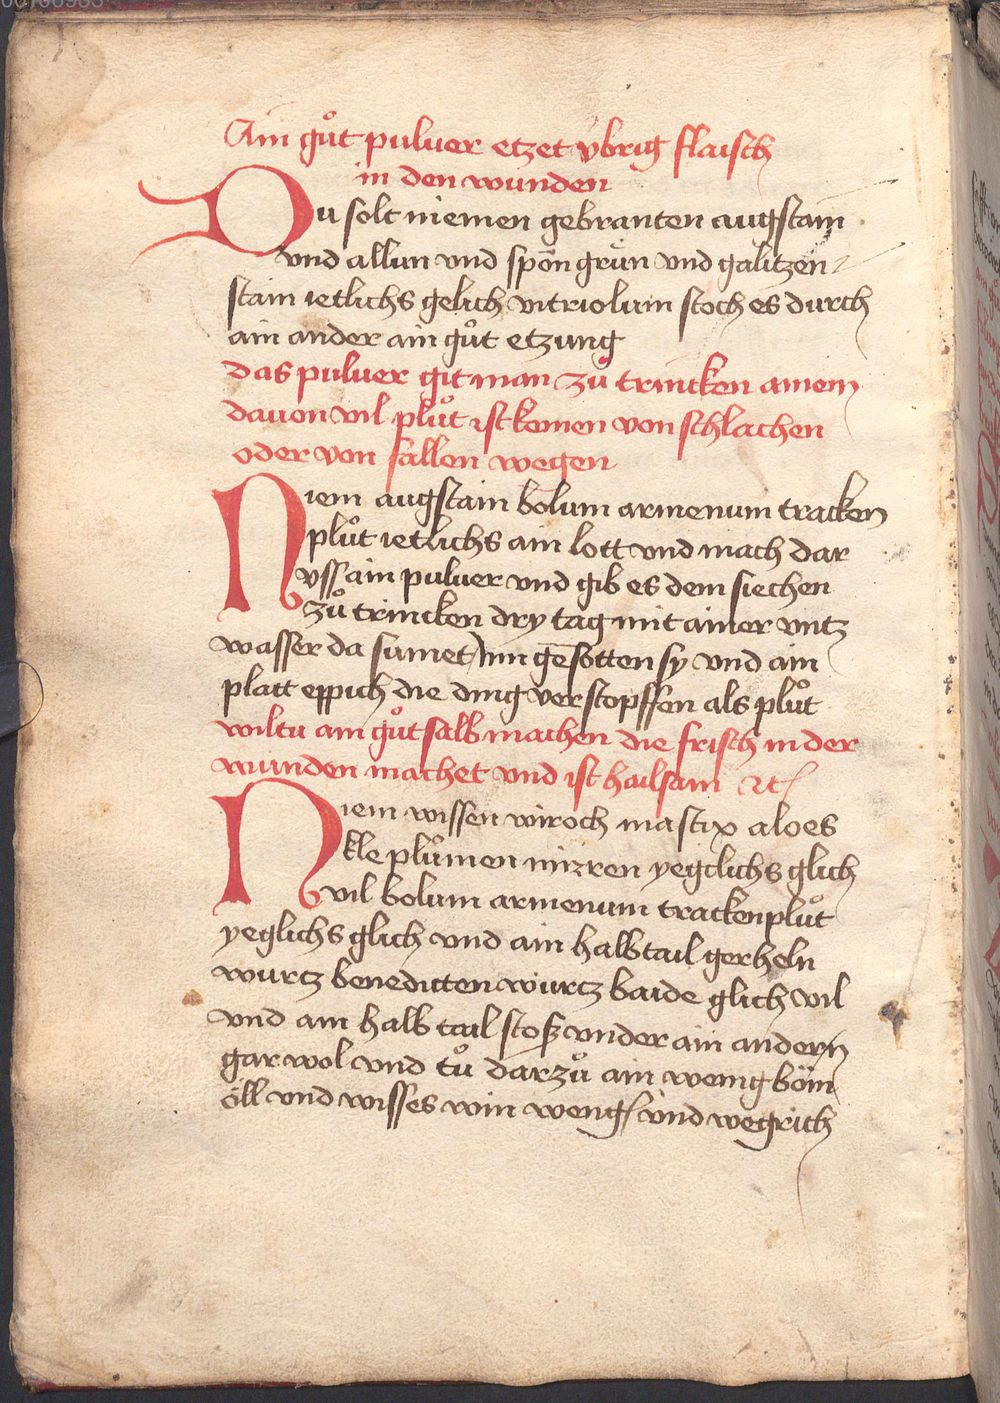 Ain gůt puluer etzet v̈brig flaisch
in den wunden
Du solt niemen gebranten augstain
vnd allun vnd spön grün vnd galitzen
stain ietlichs gelich vitriolum stoch es durch
ain ander ain gůt etzung
das puluer git man zů trincken ainem
dauon vil plůt ist komen von schlachen
oder von fallen wegen
Niem augstain bolum armenum tracken
plůt ietlichs ain lott vnd mach dar
vss ain puluer vnd gib es dem siechen
zů trincken dry tag mit ainer vntz
wasser da sumet Inn gesotten sy vnd ain
platt eppich die ding verstopffen als plůt
wiltu ain gůt salb machen die frisch in der
wunden machet vnd ist hailsam etc
Niem wissen wiroch mastix aloes
kle plůmen mirren yegclichs glich
vil bolum armenum trackenplůt
yeglichs glich vnd ain halb tail gerheln
wurtz benedicten wurtz baide glich vil
vnd ain halb tail stoß vnder ain andern
gar wol vnd tů darzů ain wenig böm
öll vnd wisses win weng vnd wegrich